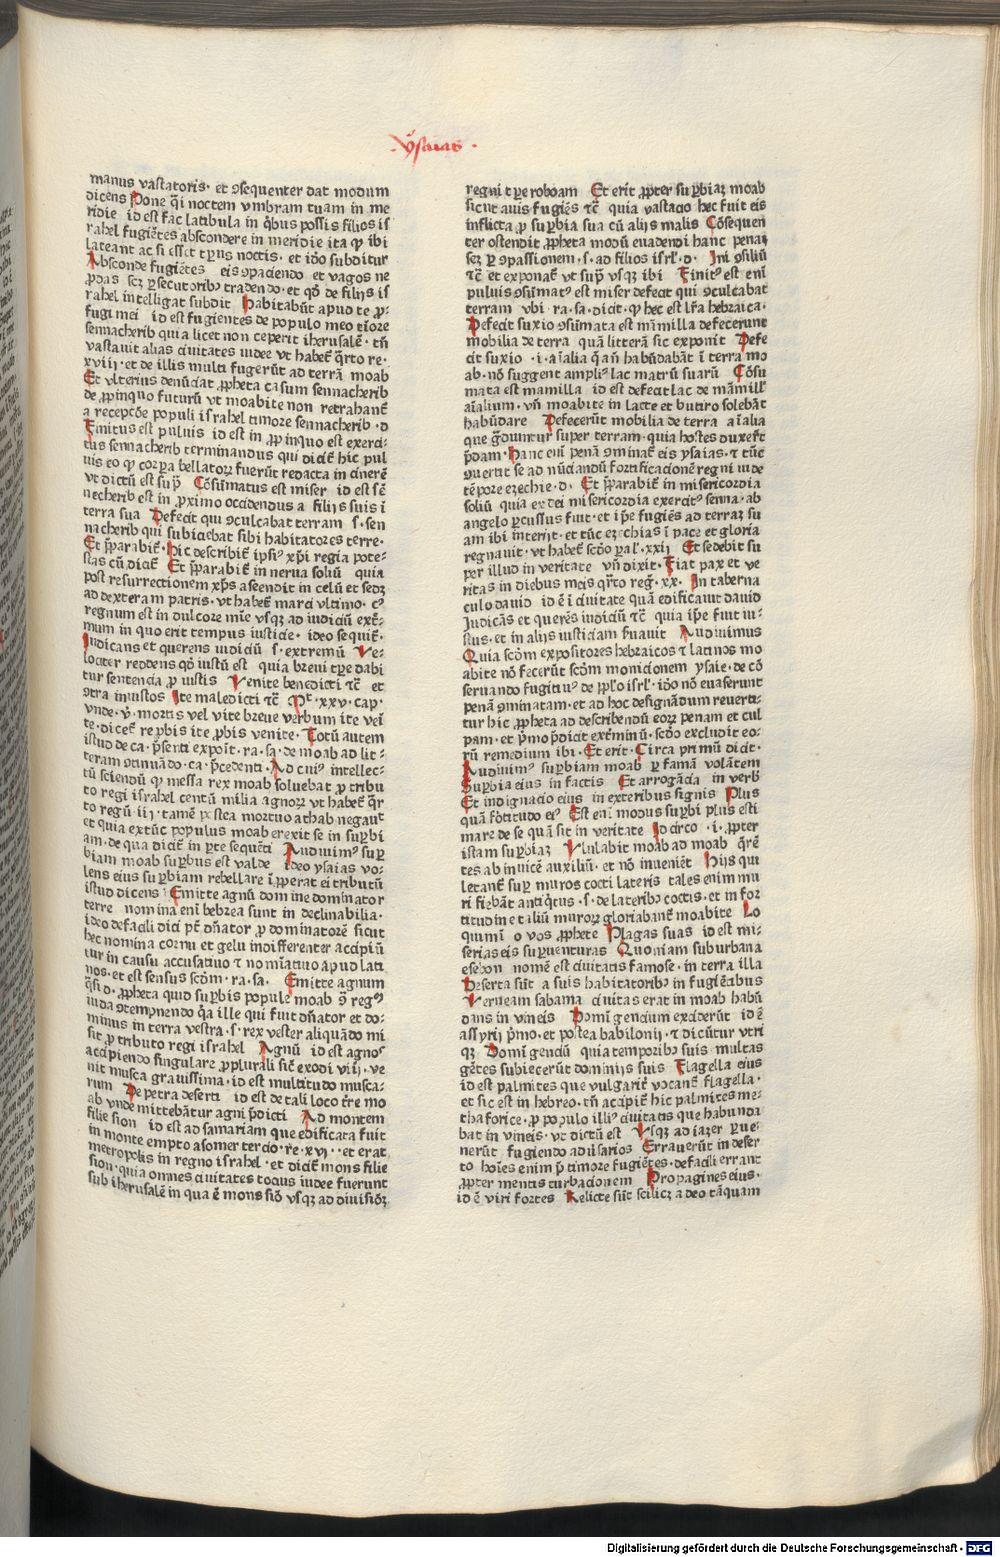 .Ysaias.
manus vastatoris· et ꝯsequenter dat modum
dicens Pone q̄i noctem vmbram tuam in me
ridie id est fac latibula in qͥbus possis filios is
rahel fugiētes abscondere in meridie ita ꝙ ibi
lateant ac si esset tp̄us noctis· et iđo subditur
Absconde fugiētes eis ꝯpaciendo et vagos ne
ꝓdas scꝫ ꝑsecutoribꝰ tradendo· et qꝛ de filijs is
rahel intelligat subdit Habitabūt apud te ꝓ-
fugi mei id est fugientes de populo meo tīore
sennacherib quia licet non ceperit iherusalē· tn̄
vastauit alias ciuitates iudee vt habet̉ q̊rto re·
xviij· et de illis multi fugerūt ad terrā moab
Et vlterius denūciat ꝓpheta casum sennacherib
de ꝓpinquo futurū vt moabite non retrahant̉
a recepcōe populi israhel timore sennacherib· d
Finitus est puluis id est in ꝓpinquo est exerci-
tus sennacherib terminandus qui dicit̉ hic pul
uis eo ꝙ corꝑa bellatoꝝ fuerūt redacta in cinerē
vt dictū est supͣ Cōsūmatus est miser id est sē
necherib est in ꝓximo occidendus a filijs suis ī
terra sua Defecit qui ꝯculcabat terram ·s· sen
nacherib qui subiciebat sibi habitatores terre·
Et p̄parabit̉· Hic describit̉ ipsiꝰ xp̄i regia pote-
stas cū dicit̉ Et p̄parabit̉ in nerua soliū quia
post resurrectionem xp̄s ascendit in celū et sedꝫ
ad dexteram patris· vt habet̉ marci vltimo· cꝰ
regnum est in dulcore mīe vsqꝫ ad iudiciū extͤ-
mum in quo erit tempus iusticie· ideo sequit̉·
Iudicans et querens iudiciū ·s· extremū Ve-
lociter reddens qđ iustū est quia breui tp̄e dabi
tur sentencia ꝓ iustis Venite benedicti ⁊c̄ et
ꝯtra iniustos Ite maledicti ⁊c̄ Mͭ·xxv·cap·
vnde· v̊· mortis vel vite breue verbum ite veī
te· dicet̉ rep̱bis ite ꝓbis venite· Totū autem
istud de ca· p̄senti expoīt· ra·sa· de moab ad lit-
teram ꝯtinuādo· ca· p̄cedenti· Ad cuiꝰ intellec-
tū sciendū ꝙ messa rex moab soluebat ꝓ tribu
to regi israhel centū milia agnoꝝ vt habet̉ q̊r
to regū·iij· tamē postea mortuo athab negauit
et quia extūc populus moab erexit se in suꝑbi
am· de qua dicit̉ in ꝑte sequēti Audiuimꝰ suꝑ
biam moab suꝑbus est valde ideo ysaias vo-
lens eius suꝑbiam rebellare īꝑperat ei tributū
istud dicens Emitte agnū domine dominator
terre nomina eni hebrea sunt in declinabilia·
ideo defacili dici pͭt dn̄ator ꝓ dominatorē sicut
hec nomina cornu et gelu indifferenter accipiū
tur in causu accusatiuo ⁊ nomīatiuo apud lati
nos· et est sensus scđm· ra·sa· Emitte agnum
q̊si·d· ꝓpheta quid suꝑbis popule moab ꝯͣ regꝫ
iuda ꝯtempnendo q̄a ille qui fuit dn̄ator et do-
minus in terra vestra ·s· rex vester aliquādo mi
sit ꝓ tributo regi israhel Agnū id est agnos
accipiendo singulare ꝓ plurali sic̄ exodi viij· ve
nit musca grauissima· id est multitudo musca-
rum De petra deserti id est de tali loco tr̄re mo
ab vnde mittebātur agni p̄dicti Ad montem
filie sion id est ad samariam que edificata fuit
in monte empto a somer tercio· rē·xvj··et erat
metropolis in regno israhel· et dicit̉ mons filie
sion· quia omnes ciuitates tocius iudee fuerunt
sub iherusalē in qua ē mons siō vsqꝫ ad diuisiōꝫ
regni tp̄e roboam Et erit ꝓpter suꝑbiaꝫ moab
sicut auis fugiēs ⁊c̄ quia vastacio hec fuit eis
inflicta ꝓ suꝑbia sua cū alijs malis Cōsequen
ter ostendit ꝓpheta modū euadendi hanc penaꝫ
scꝫ ꝑ ꝯpassionem ·s· ad filios isrl̓·d· Ini ꝯsiliū
⁊c̄ et exponat̉ vt supͣ vsqꝫ ibi Finitꝰ est enī
puluis ꝯsūmatꝰ est miser defecit qui ꝯculcabat
terram vbi ra·sa·dicit· ꝙ hec est lr̄a hebraica·
Defecit suxio ꝯsūmata est māmilla defecerunt
mobilia de terra quā litterā sic exponit Defe
cit suxio ·i· aīalia q̄ añ habūdabāt ī terra mo
ab· nō suggent ampliꝰ lac matrū suarū Cōsu
mata est mamilla id est defecit lac de māmill̓
aīalium· vn̄ moabite in lacte et butiro solebāt
habūdare Defecerūt mobilia de terra aīalia
que g̊diuntur super terram· quia hostes duxer̄t
p̄dam· Hanc enī penā ꝯminat̉ eis ysaias· ⁊ tūc
ꝯuertit se ad nūciandū fortificacionē regni iude
tēpore ezechie·d· Et p̄parabit̉ in misericordia
soliū quia ex dei misericordia exercitꝰ senna· ab
angelo ꝑcussus fuit· et ip̄e fugiēs ad terraꝫ su
am ibi interijt· et tūc ezechias ī pace et gloria
regnauit· vt habet̉ scđo ꝑal̓·xxij Et sedebit su
per illud in veritate vn̄ dixit· Fiat pax et ve
ritas in diebus meis q̊rto reg̓·xx· In taberna
culo dauid id ē ī ciuitate quā edificauit dauid
Iudicās et querēs iudiciū ⁊c̄ quia ip̄e fuit iu-
stus· et in alijs iusticiam seruauit Audiuimus
Quia scđm expositores hebraicos ⁊ latinos mo
abite nō fecerūt scđm monicionem ysaie· de cō
seruando fugitiuꝰ de pp̄lo isrl̓· iđo nō euaserunt
penā ꝯminatam· et ad hoc designādum reuerti-
tur hic ꝓpheta ad describendū eoꝝ penam et cul
pam· et pͥmo p̄dicit exīminiū· scđo excludit eo-
rū remedium ibi· Et erit· Circa primū dicit·
Audiuimꝰ suꝑbiam moab ꝑ famā volātem
Suꝑbia eius in factis Et arrogācia in verb̓
Et indignacio eius in exteribus signis Plus
quā fōtitudo eiꝰ Est enī modus suꝑbi plus esti
mare de se quā sit in veritate Idcirco ·i· ꝓpter
istam suꝑbiaꝫ Vlulabit moab ad moab q̄rē
tes ab inuicē auxiliū· et nō inueniēt Hijs qui
letant̉ suꝑ muros cocti lateris tales enim mu
ri fiebāt antiqͥtus ·s· de lateribꝰ coctis· et in for
titudine taliū muroꝝ gloriabant̉ moabite Lo
quimī o vos ꝓphete Plagas suas id est mi-
serias eis suꝑuenturas Quoniam suburbana
esebon nomē est ciuitatis famose· in terra illa
Deserta sūt a suis habitatoribꝰ in fugiētibus
Veruiam sabama ciuitas erat in moab habū
dans in vineis Domī gencium exciderūt id ē
assyrij pͥmo· et postea babilonij· ⁊ dicūtur vtri
qꝫ Domī genciū quia temporibꝰ suis multas
gētes subiecerūt dominijs suis Flagella eius
id est palmites que vulgarit̉ vocant̉ flagella·
et sic est in hebreo· tn̄ accipit̉ hic palmites me-
thaforice· ꝓ populo illiꝰ ciuitatis que habunda
bat in vineis· vt dictū est Vsqꝫ ad iazer ꝑue-
nerūt fugiendo aduersarios Errauerūt in deser
to hoīes enim p̄ timore fugiētes· defacili errant
ꝓpter mentis turbacionem Propagines eius·
id ē viri fortes Relicte sūt scilicꝫ a deo tāquam
Digitalisierung gefördert durch die Deutsche Forschungsgemeinschaft - DFG